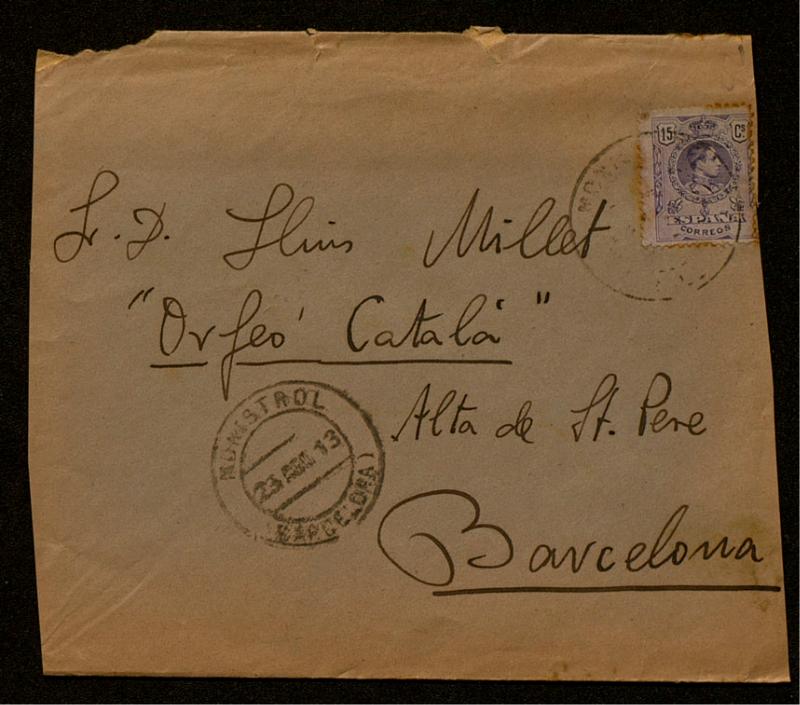 15 Cs
ESPAÑA
CORREOS
Sr. D. Lluis Millet
"Orfeó Catalá"
Alta de St. Pere
Barcelona
MONISTROL
23 AGO 13
(BARCELONA)